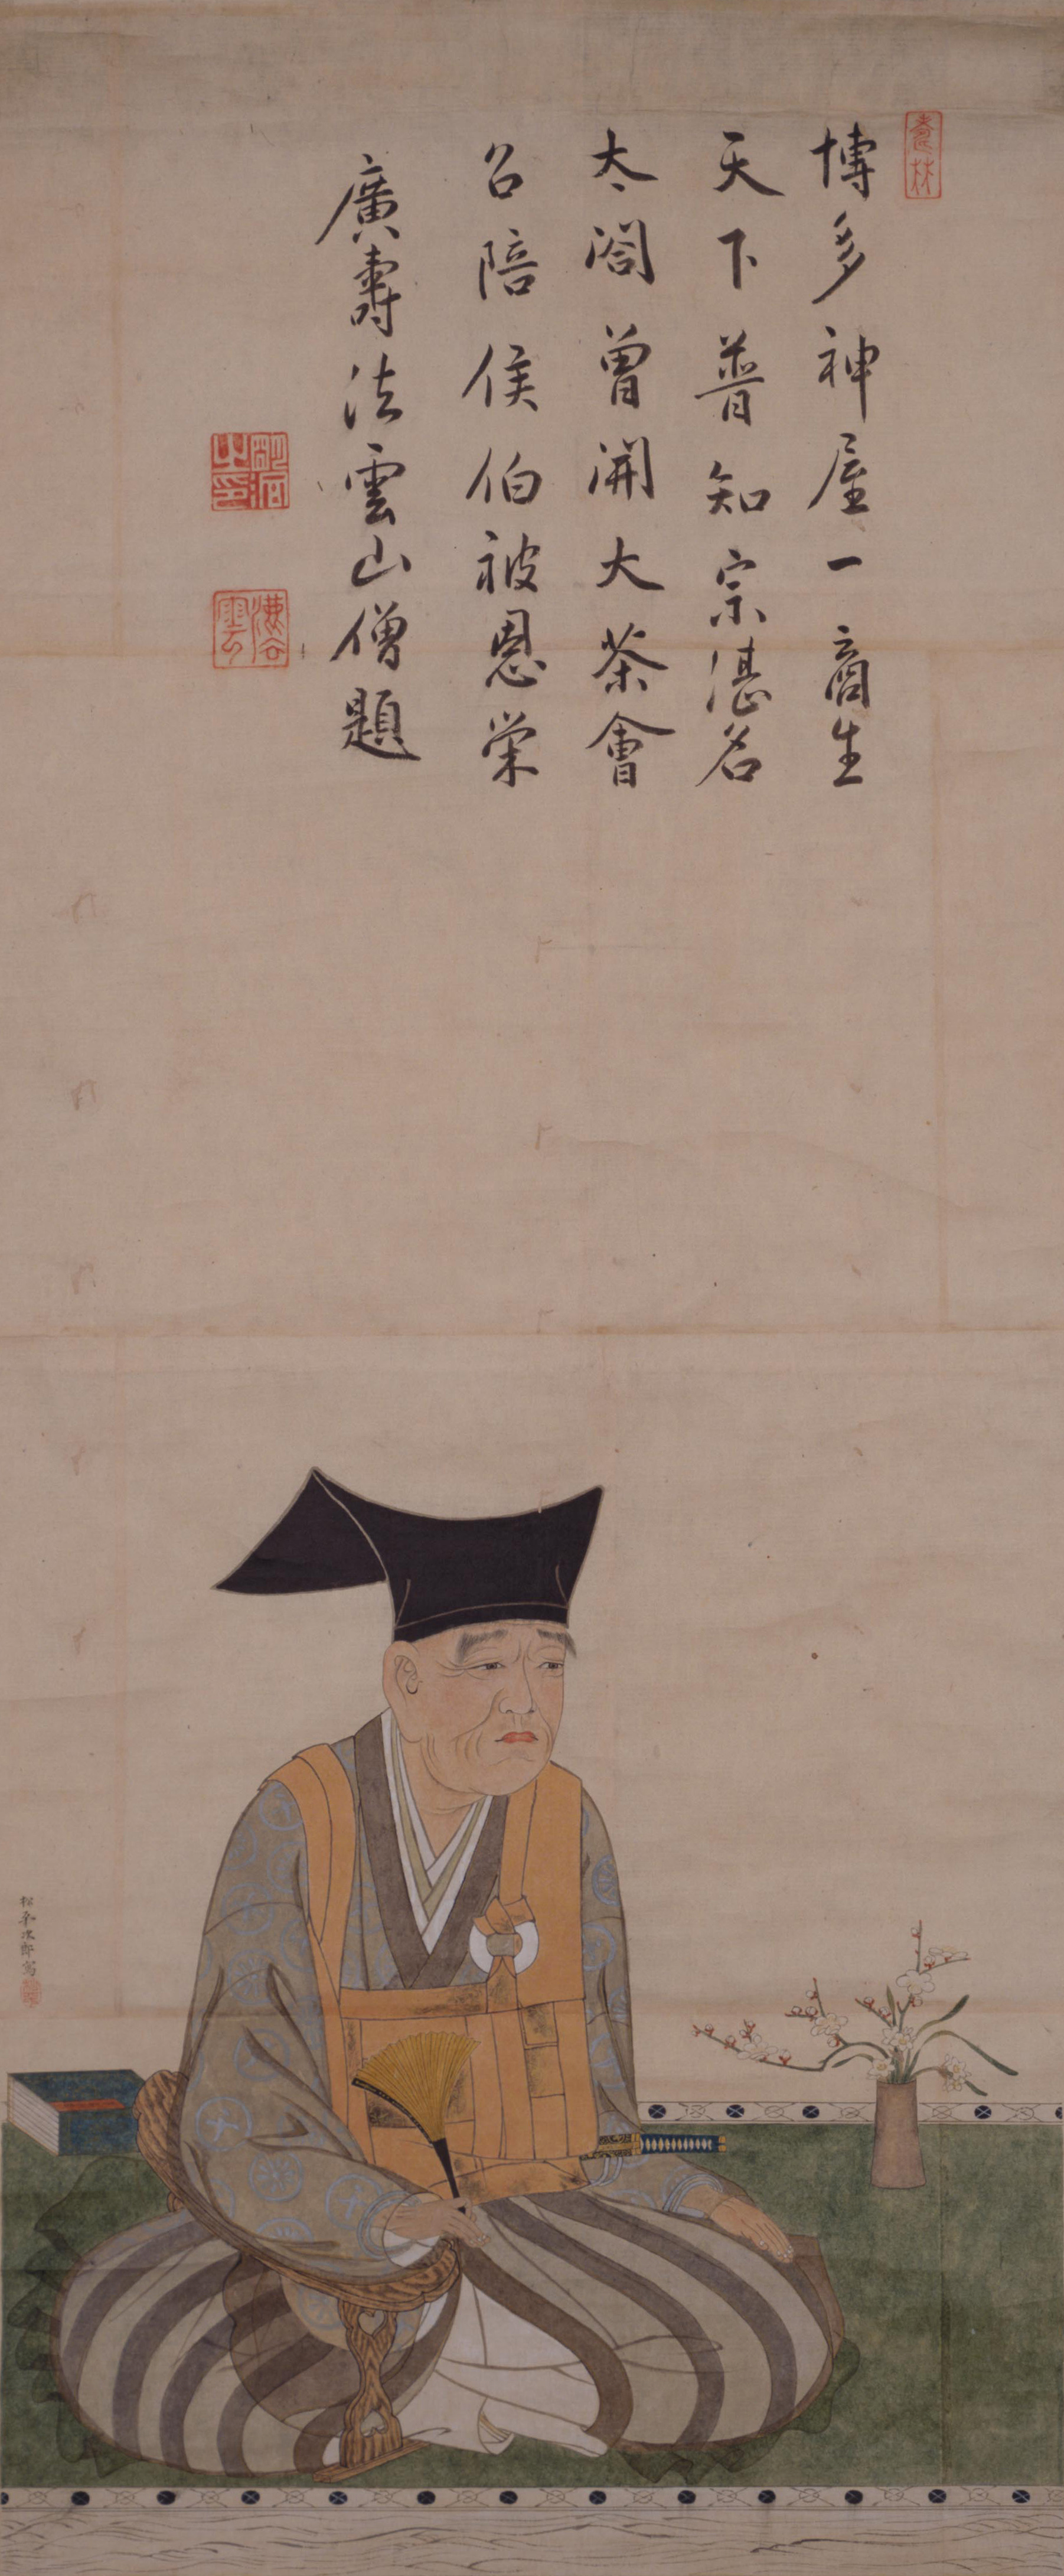 博多神屋一商生
天下普知宗湛名
太閤曽開大茶會
召陪侯伯被恩栄
廣壽法雲山僧題
松平次郎寫